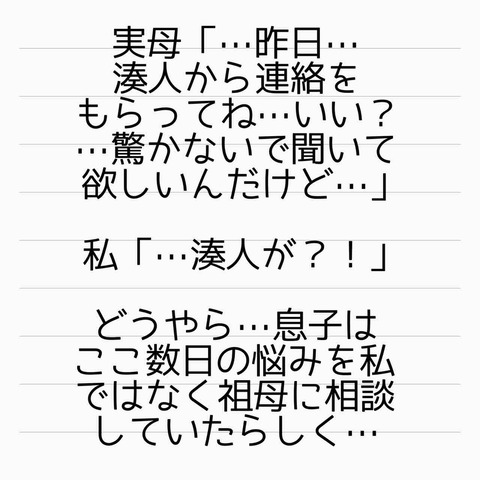 実母「…昨日…
湊人から連絡を
もらってね…いい？
…驚かないで聞いて
欲しいんだけど…」
私「…湊人が？！」
どうやら…息子は
ここ数日の悩みを私
ではなく祖母に相談
していたらしく…